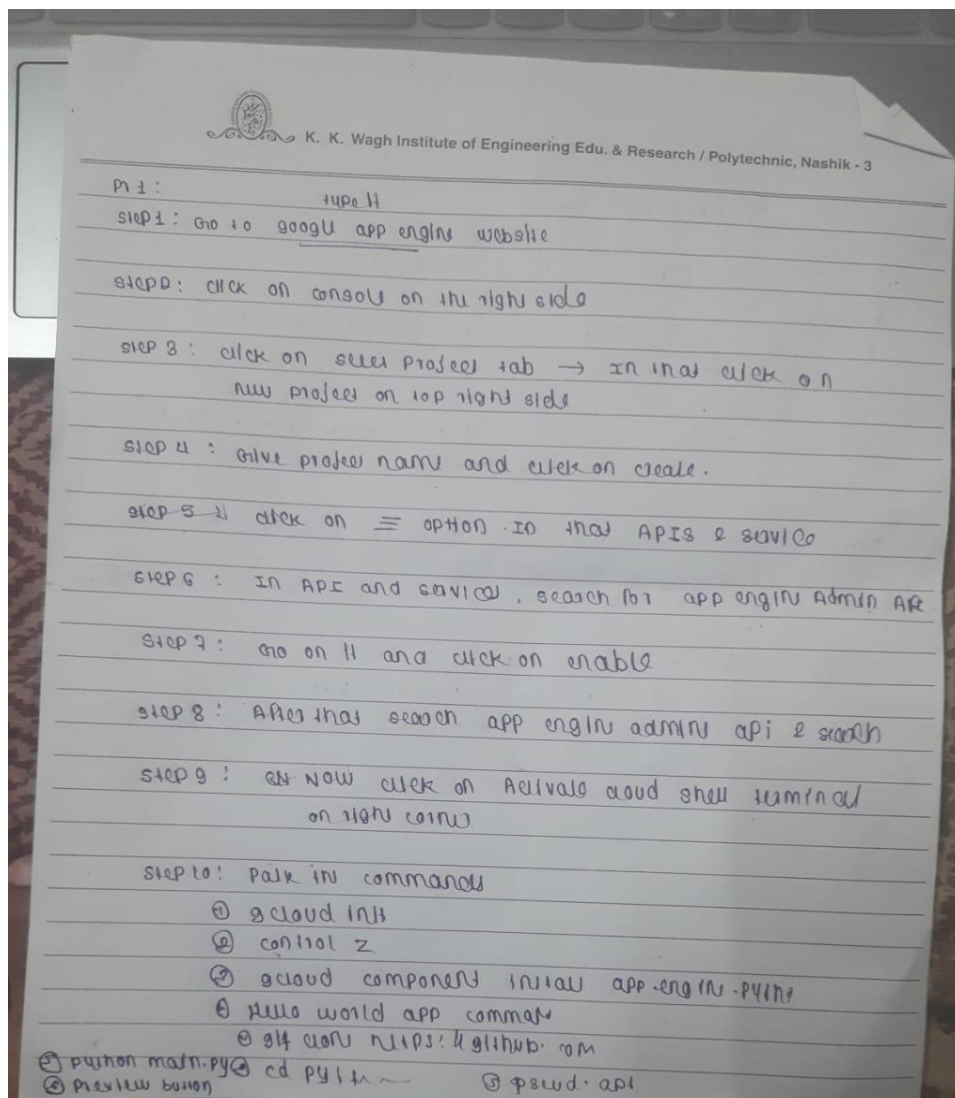 K. K. Wagh Institute of Engineering Edu. & Research / Polytechnic, Nashik - 3
type it
Step 1 : Go to google app engine website
Step 2 : click on console on the right side
Step 3 : click on select project tab → In that click on
new project on top right side
Step 4 : Give project name and click on create.
Step 5 click on ≡ option . In that APIs & service
Step 6 : In API and services , search for app engine Admin API
Step 7 : Go on it and click on enable
Step 8 : After that search app engine admin api & search
Step 9 : Now click on Activate cloud shell terminal
on right corner
Step 10 : in commands
① gcloud init
② control z
③ gcloud component install app-engine-python
④ Hello world app
git clone https://github.com
python main.py cd
preview button ⑤